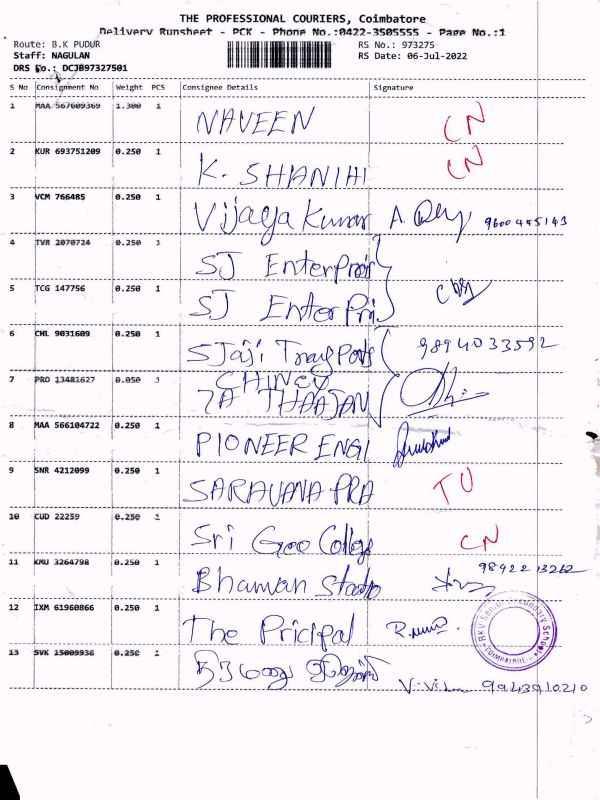 THE PROFESSIONAL COURIERS, Coimbatore
Delivery Runsheet - PCK - Phone No.:0422-3505555 - Page No.:1
Route: B.K PUDUR
RS No.: 973275
Staff: NAGULAN
RS Date: 06-Jul-2022
DRS No.: DCJB97327501
S No Consignment No Weight PCS Consignee Details Signature
1 MAA 567609369 1.300 1 NAVEEN CN
2 KUR 693751209 0.250 1 K. SHANTHI CN
3 VCM 766485 0.250 1 Vijaya Kumar A. 9600445143
4 TVR 2070724 0.250 1 SJ Enterprais
5 TCG 147756 0.250 1 SJ Enterpri
6 CHL 9031609 0.250 1 9894033592
7 PRO 13481627 0.050
8 MAA 566104722 0.250 1 PIONEER ENGI
9 SNR 4212099 0.250 1 SARAVANA PRA TU
10 CUD 22259 0.250 1 Sri College CN
11 KMU 3264798 0.250 1 Bhaman
12 IXM 61960866 0.250 1 The Pricipal
13 SVK 15009936 0.250 1 9943910210